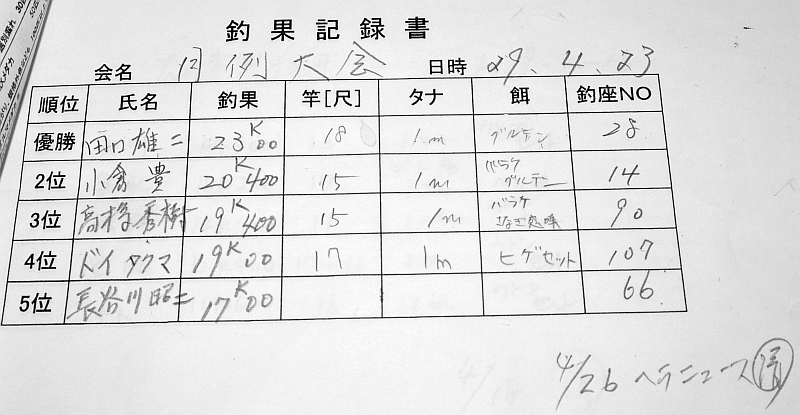 釣果記録書
会名 月例大会 日時 29.4.23
順位 氏名 釣果 竿[尺] タナ 餌 釣座NO
優勝 田口雄二 23K00 18 1m グルテン 28
2位 小倉貴 20K400 15 1m バラケ グルテン 14
3位 高橋秀樹 19K400 15 1m バラケ 90
4位 ドイタクマ 19K00 17 1m ヒゲセット 107
5位 長谷川昭二 17K00 66
4/26 ヘラニュース 済